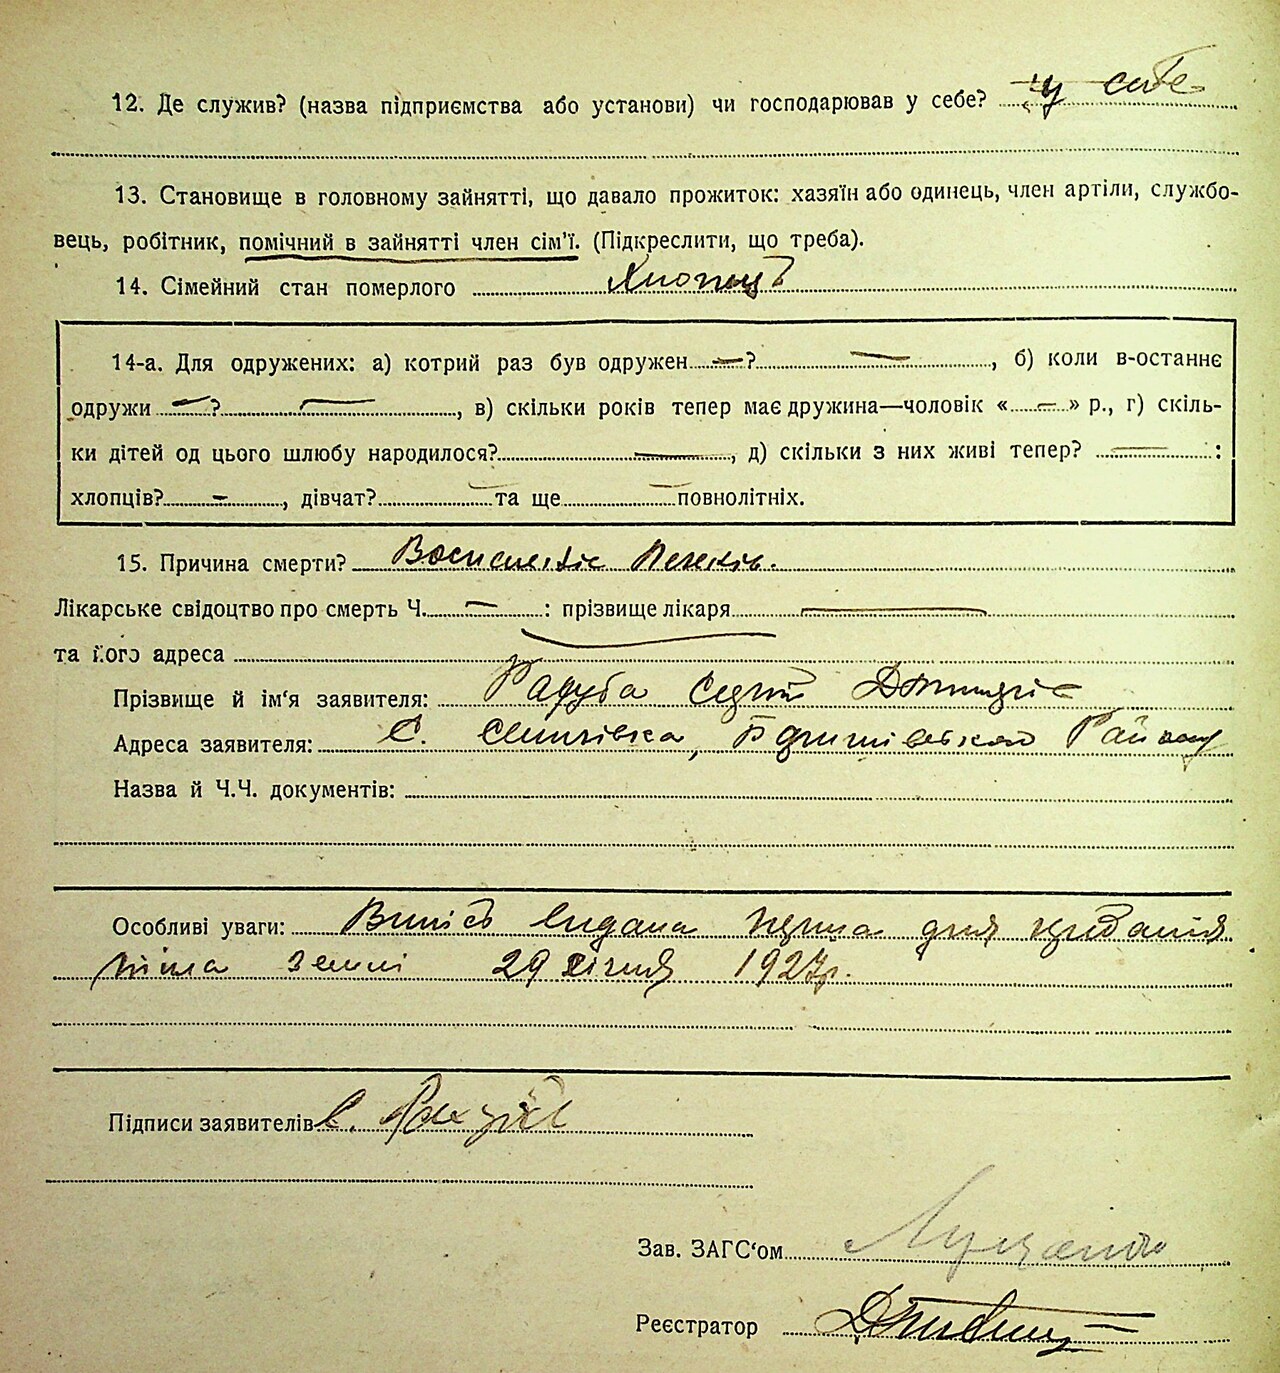 12. Де служив? (назва підприємства або установи) чи господарював у себе? у себе
13. Становище в головному зайнятті, що давало прожиток: хазяїн або одинець, член артіли, службо-
вець, робітник, помічний в зайнятті член сім'ї. (Підкреслити, що треба).
14. Сімейний стан померлого Хлопець
14-а. Для одружених: а) котрий раз був одружен —? —, б) коли в-останнє
одружи —? —, в) скільки років тепер має дружина—чоловік «—» р., г) скіль-
ки дітей од цього шлюбу народилося? —, д) скільки з них живі тепер? — :
хлопців? —, дівчат? — та ще — повнолітніх.
15. Причина смерти? Воспаленіє Легких.
Лікарське свідоцтво про смерть Ч. — : прізвище лікаря —
та його адреса —
Прізвище й ім'я заявителя: Радуба
Адреса заявителя: С. Семенівка, Району
Назва й Ч.Ч. документів:
Особливі уваги: Випісь видана перша для предання
тіла землі 29 січня 1927р.
Підписи заявителів С.
Зав. ЗАГС'ом
Реєстратор